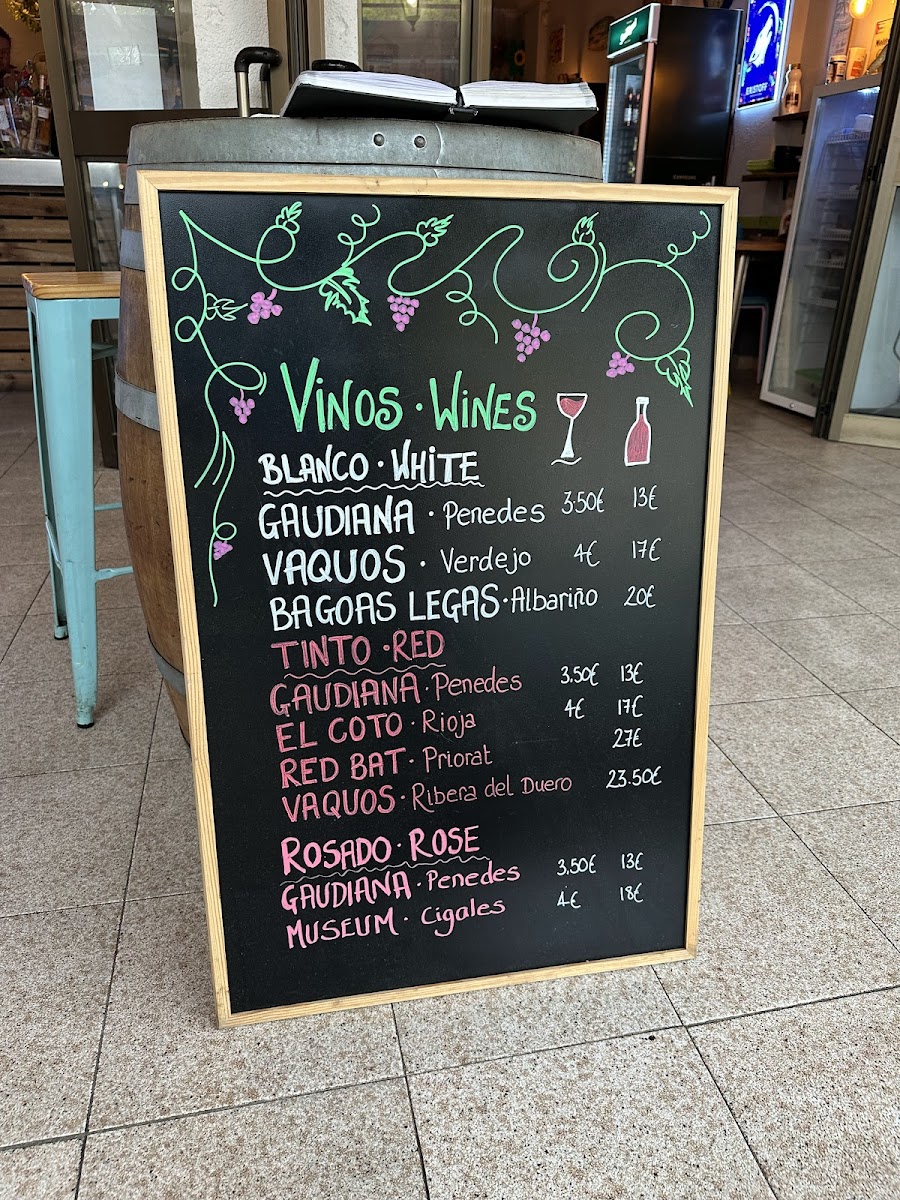 ERISTOFF
VINOS · WINES
BLANCO · WHITE
GAUDIANA · Penedes 3.50€ 13€
VAQUOS · Verdejo 4€ 17€
BAGOAS LEGAS · Albariño 20€
TINTO · RED
GAUDIANA · Penedes 3.50€ 13€
EL COTO · Rioja 4€ 17€
RED BAT · Priorat 27€
VAQUOS · Ribera del Duero 23.50€
ROSADO · ROSE
GAUDIANA · Penedes 3,50€ 13€
MUSEUM · Cigales 4€ 18€